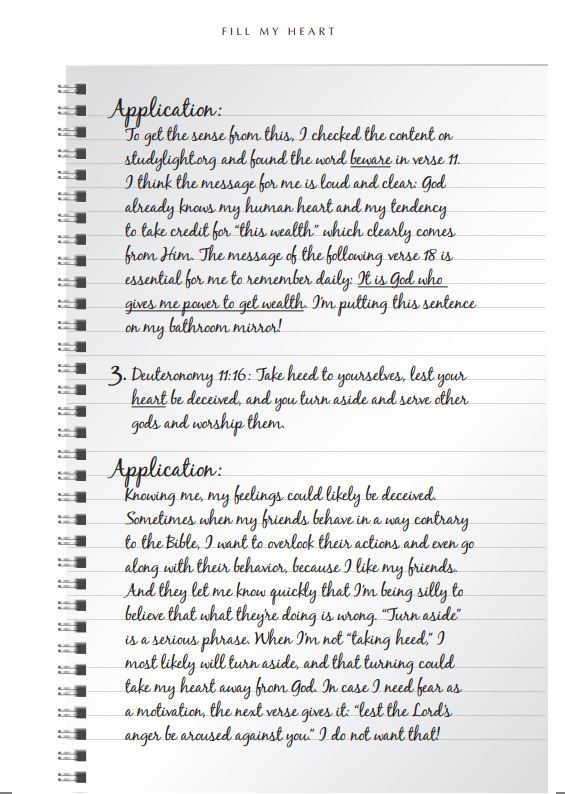 FILL MY HEART
Application:
To get the sense from this, I checked the content on
studylight.org and found the word beware in verse 11.
I think the message for me is loud and clear: God
already knows my human heart and my tendency
to take credit for "this wealth" which clearly comes
from Him. The message of the following verse 18 is
essential for me to remember daily: It is God who
gives me power to get wealth. I'm putting this sentence
on my bathroom mirror!
3. Deuteronomy 11:16: Take heed to yourselves, lest your
heart be deceived, and you turn aside and serve other
gods and worship them.
Application:
Knowing me, my feelings could likely be deceived.
Sometimes when my friends behave in a way contrary
to the Bible, I want to overlook their actions and even go
along with their behavior, because I like my friends.
And they let me know quickly that I'm being silly to
believe that what they're doing is wrong. "Turn aside"
is a serious phrase. When I'm not "taking heed," I
most likely will turn aside, and that turning could
take my heart away from God. In case I need fear as
a motivation, the next verse gives it: "lest the Lord's
anger be aroused against you." I do not want that!